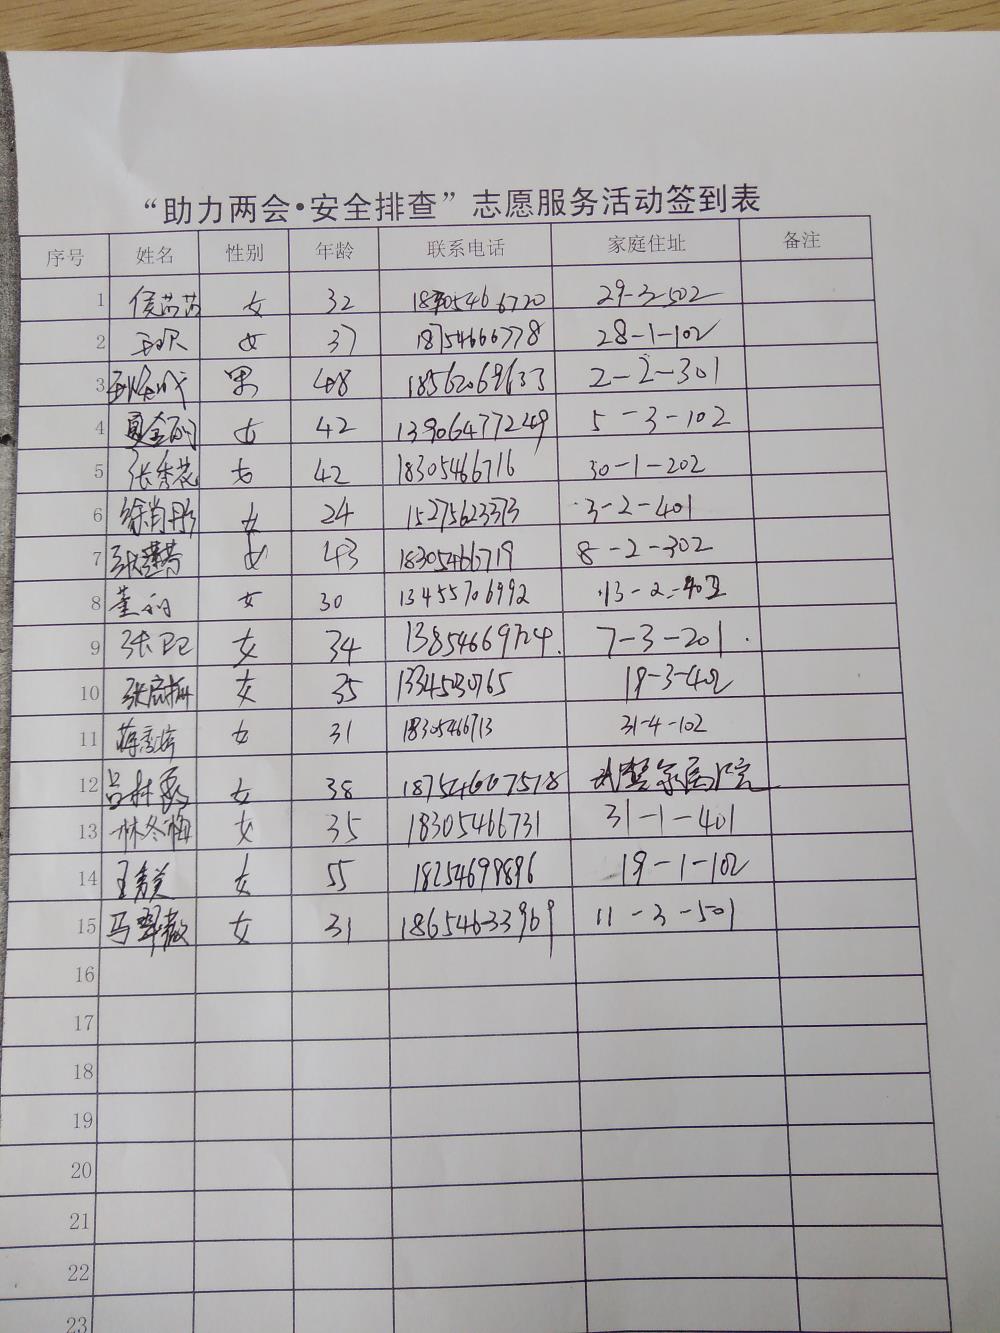 “助力两会•安全排查”志愿服务活动签到表
序号 姓名 性别 年龄 联系电话 家庭住址 备注
1 侯芮芮 女 32 29-3-502
2 王欣 女 37 18754666778 28-1-102
3 男 48 18562069633 2-2-301
4 夏金丽 女 42 139064772249 5-3-102
5 张秀花 女 42 18305466716 30-1-202
6 徐肖彤 女 24 15275623373 3-2-401
7 女 43 18305466719 8-2-302
8 董丽 女 30 13455706992 13-2-402
9 张卫 女 34 13854669724 7-3-201
10 女 35 19-3-402
11 女 31 18305466713 31-4-102
12 女 38 18754607518
13 林冬梅 女 35 18305466731 31-1-401
14 女 55 18254699896 19-1-102
15 马翠薇 女 31 18654633969 11-3-501
16
17
18
19
20
21
22
23